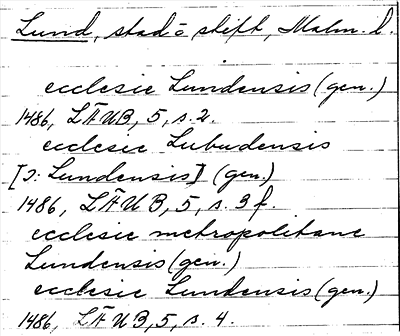 Lund, stad o. stift, Malm. l.
ecclesie Lundensis (gen.)
1486, LÄUB, 5, s. 2.
ecclesie Lubudensis
[ɔ: Lundensis] (gen.)
1486, LÄUB, 5, s. 3 f.
ecclesie metropolitane
Lundensis (gen.)
ecclesie Lundensis (gen.)
1486, LÄUB, 5, s. 4.